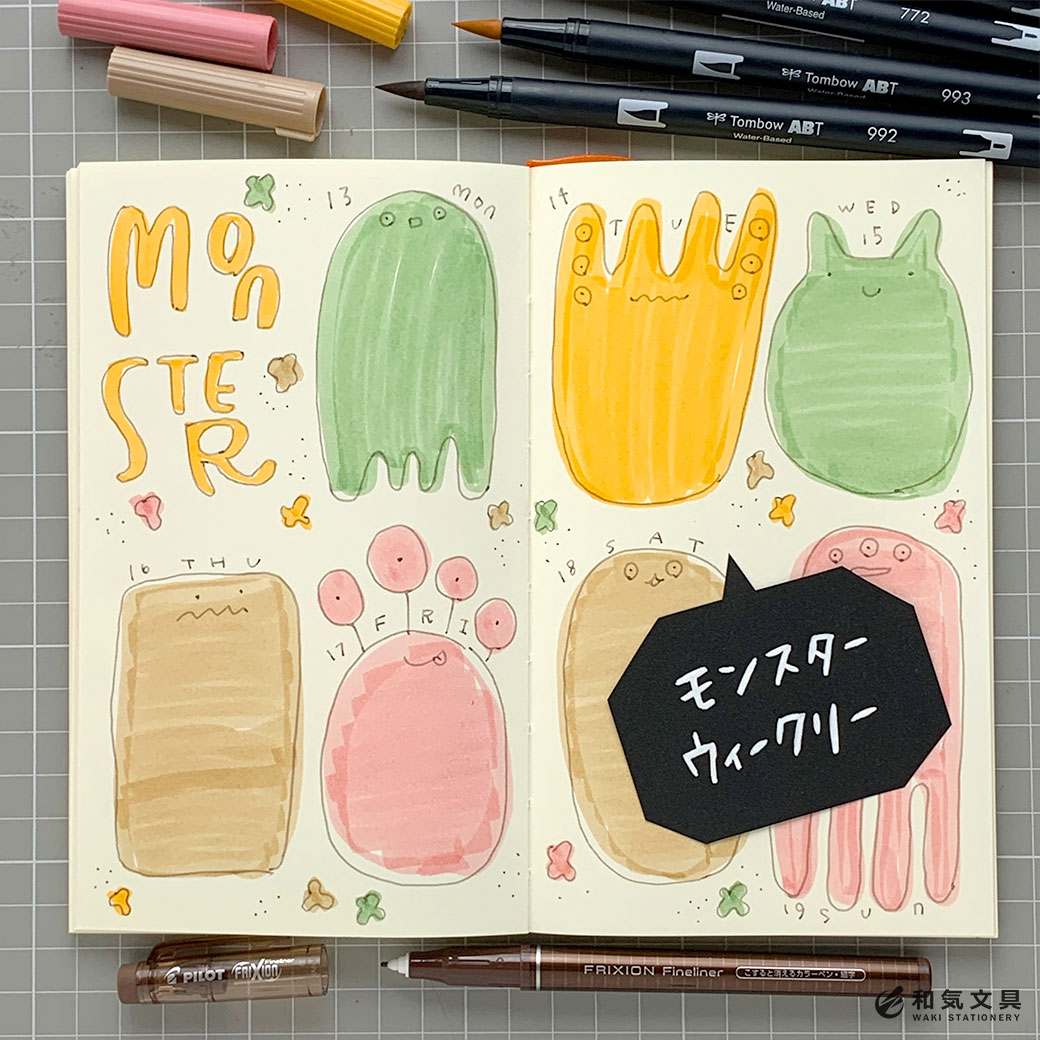 ABT
Water-Based
772
Tombow ABT
Water-Based
993
Tombow ABT
Water-Based
992
Mon
STE
R
13 Mon
14 TUE
WED
15
16 THU
17 FRI
18 SAT
19 Sun
モンスター
ウィークリー
PILOT FRIXION Fineliner
FRIXION Fineliner こすると消えるカラーペン・細字
和気文具
WAKI STATIONERY